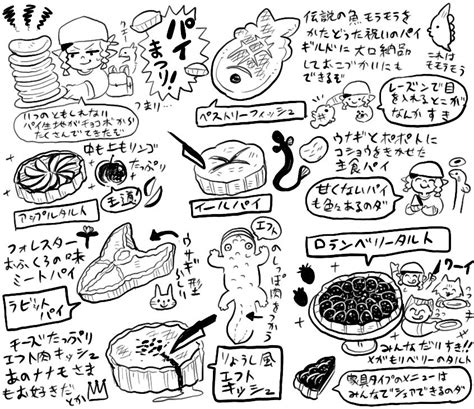 パイ
まつり!
いつのともしれない
パイ生地がチョコボかばんから
たくさんでてきたぞ
つまり…
ペストリーフィッシュ
伝説の魚モラモラを
かたどった祝いのパイ
ギルドに大口納品
しておこづかいにも
できるぞ
これは
モラモラ
レーズンで目
を入れるとこが
なんかすき
中も上もリンゴ
たっぷり
王道!
アップルタルト
イールパイ
ウナギとポポトに
コショウをきかせた
主食パイ
甘くないパイ
も色々あるのダ
フォレスター
おふくろの味
ミートパイ
ラビット
パイ
ウサギ型
らしい
エフト
のしっぽ肉をつかう
チーズたっぷり
エフト肉キッシュ
あのナナモさま
もお好きだ
とか
りょうし風
エフト
キッシュ
ロランベリータルト
ワーイ
みんなだいすき!!
とがもりベリーのタルト
家具タイプのメニューは
みんなでシェアできるのダ